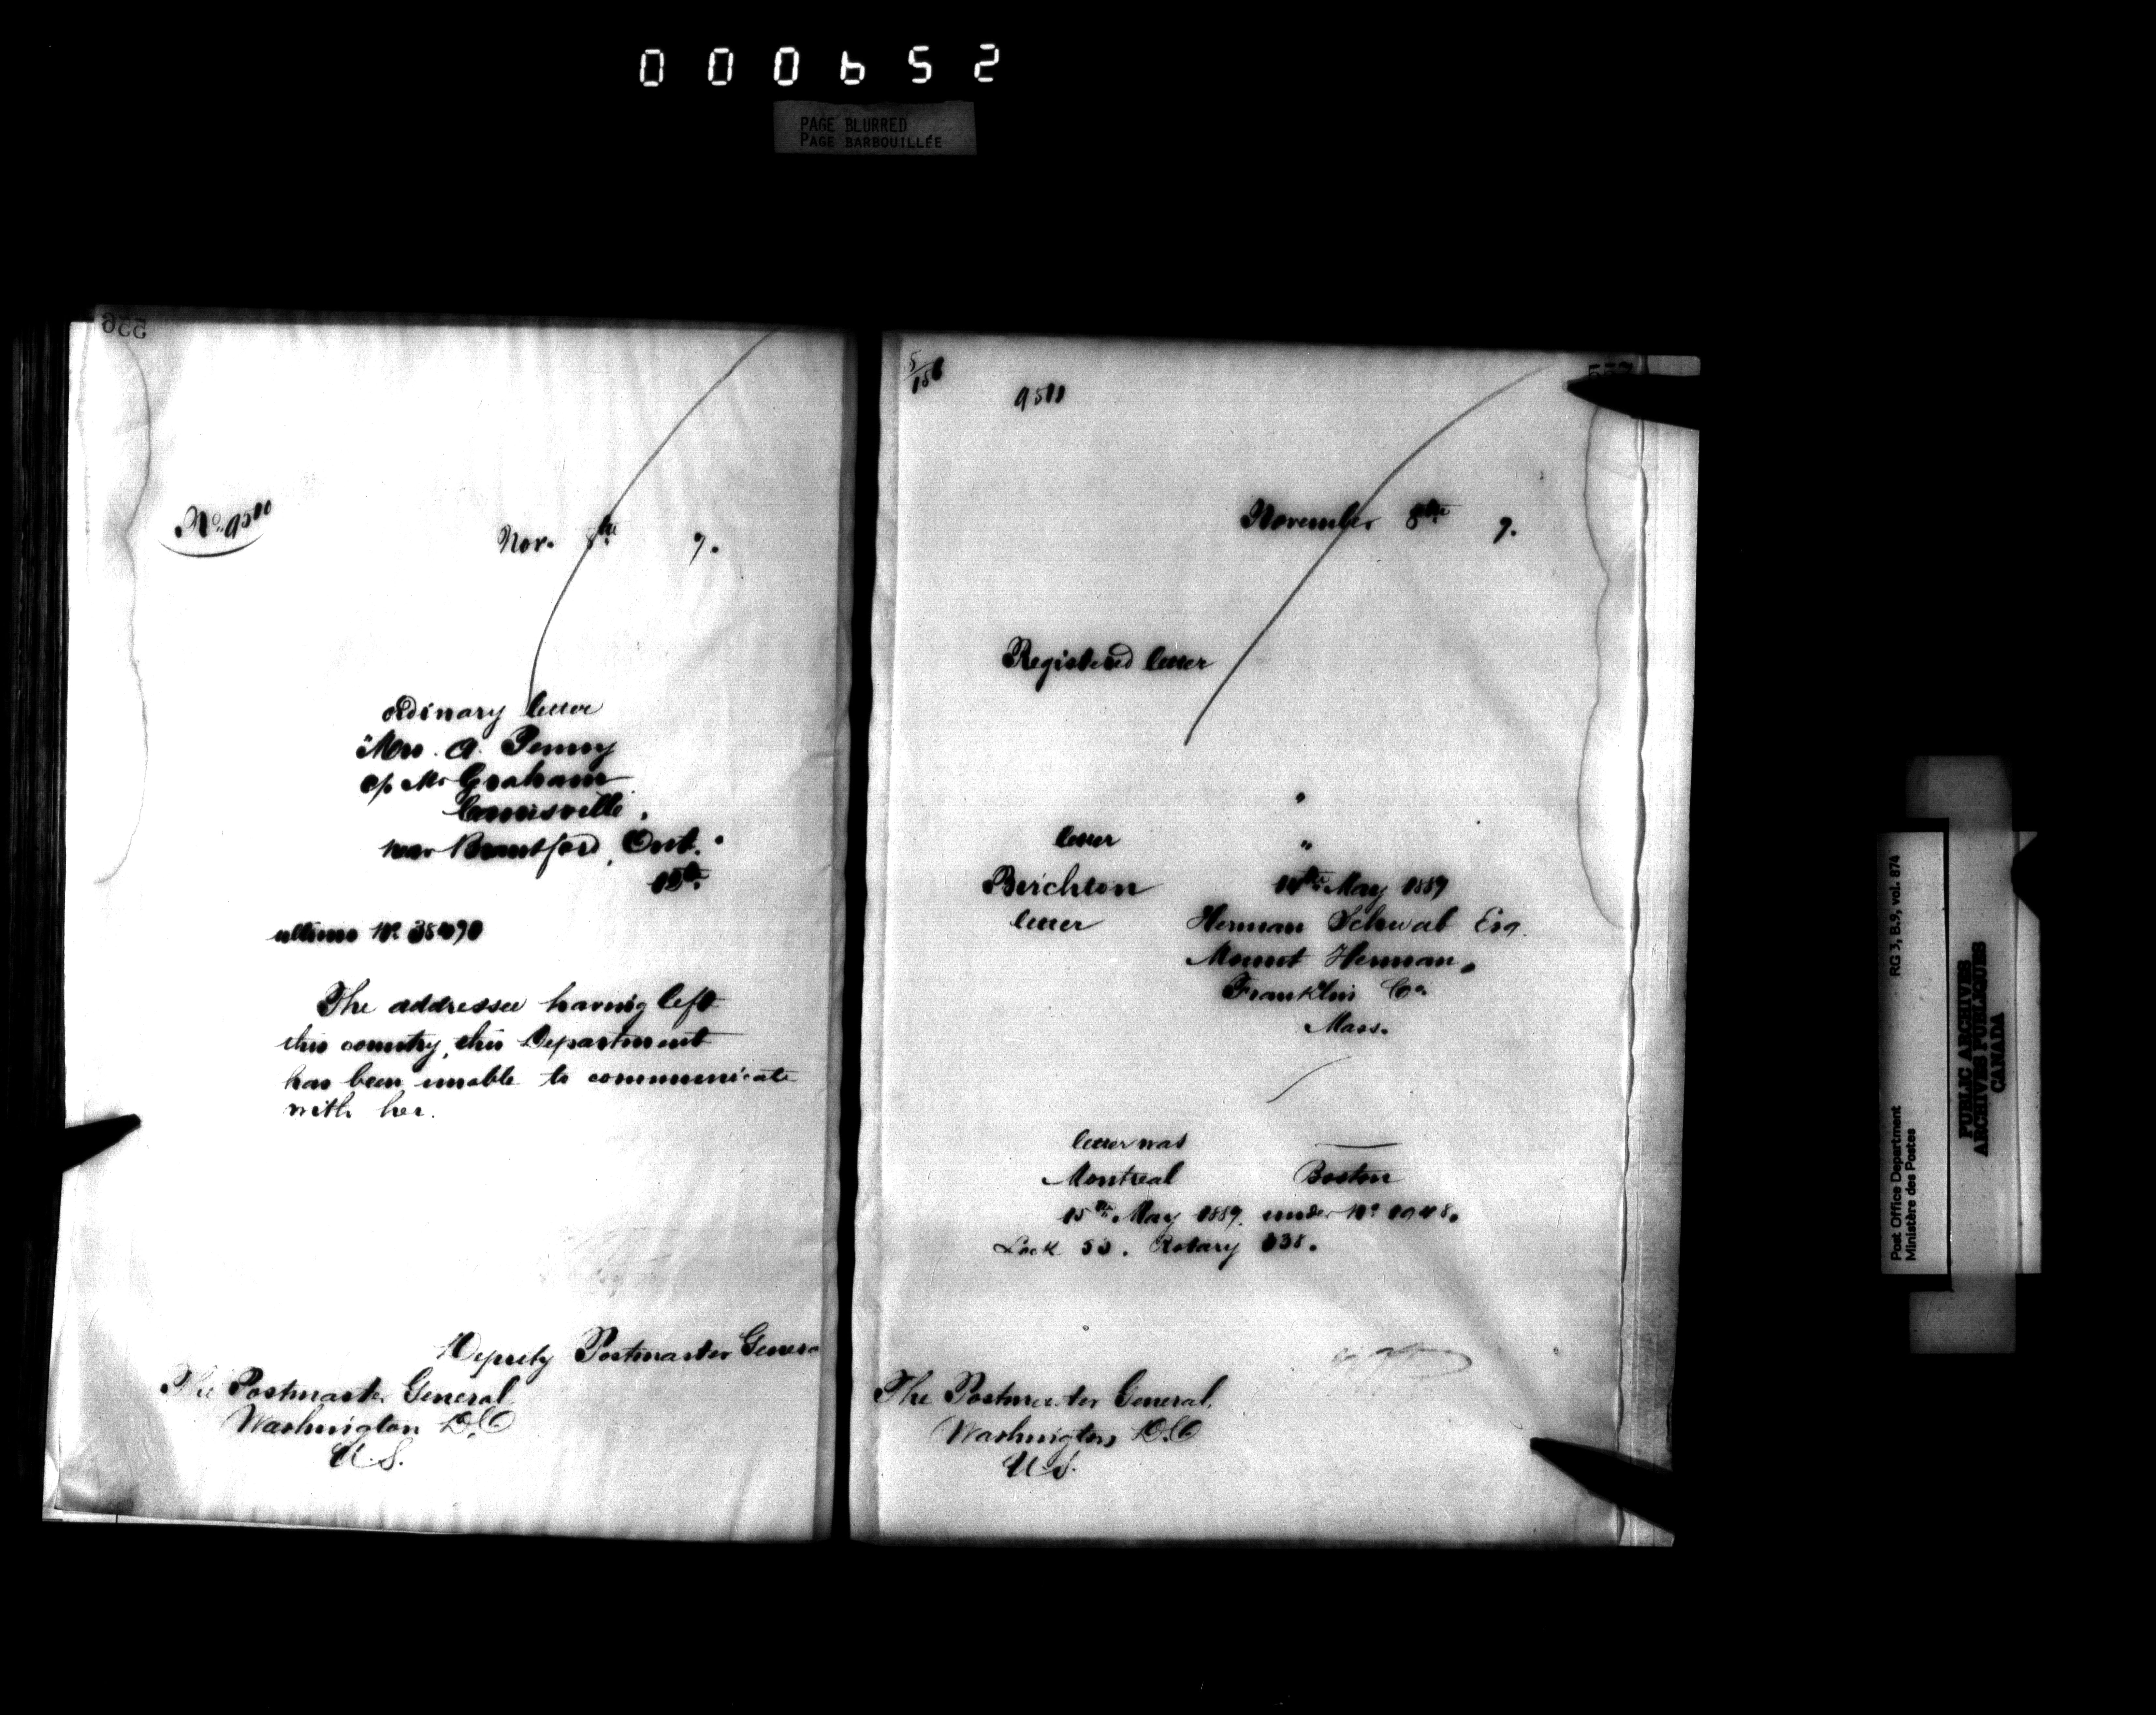 000652
PAGE BLURRED
PAGE BARBOUILLÉE
556
No. 9500
Nov. 8th 9.
ordinary letter
"Mrs. A. Penny
c/o Mr Graham
near Brantford, Ont."
15th
ultimo No. 38490
The addressee having left
this country, this Department
has been unable to communicate
with her.
Deputy Postmaster Genera
The Postmaster General
Washington D.C
U.S.
5/156
9511
November 8th 9.
Registered letter
"
letter "
Beichton 14th May 1889
letter Herman Schwab Esq.
Mount Herman,
Franklin Co.
Mass.
letter was
Montreal Boston
15th May 1889. under No. 1948.
Lock 53. Rotary 338.
The Postmaster General,
Washington D.C
U.S.
RG 3, B.9, vol. 874
Post Office Department
Ministère des Postes
PUBLIC ARCHIVES
ARCHIVES PUBLIQUES
CANADA